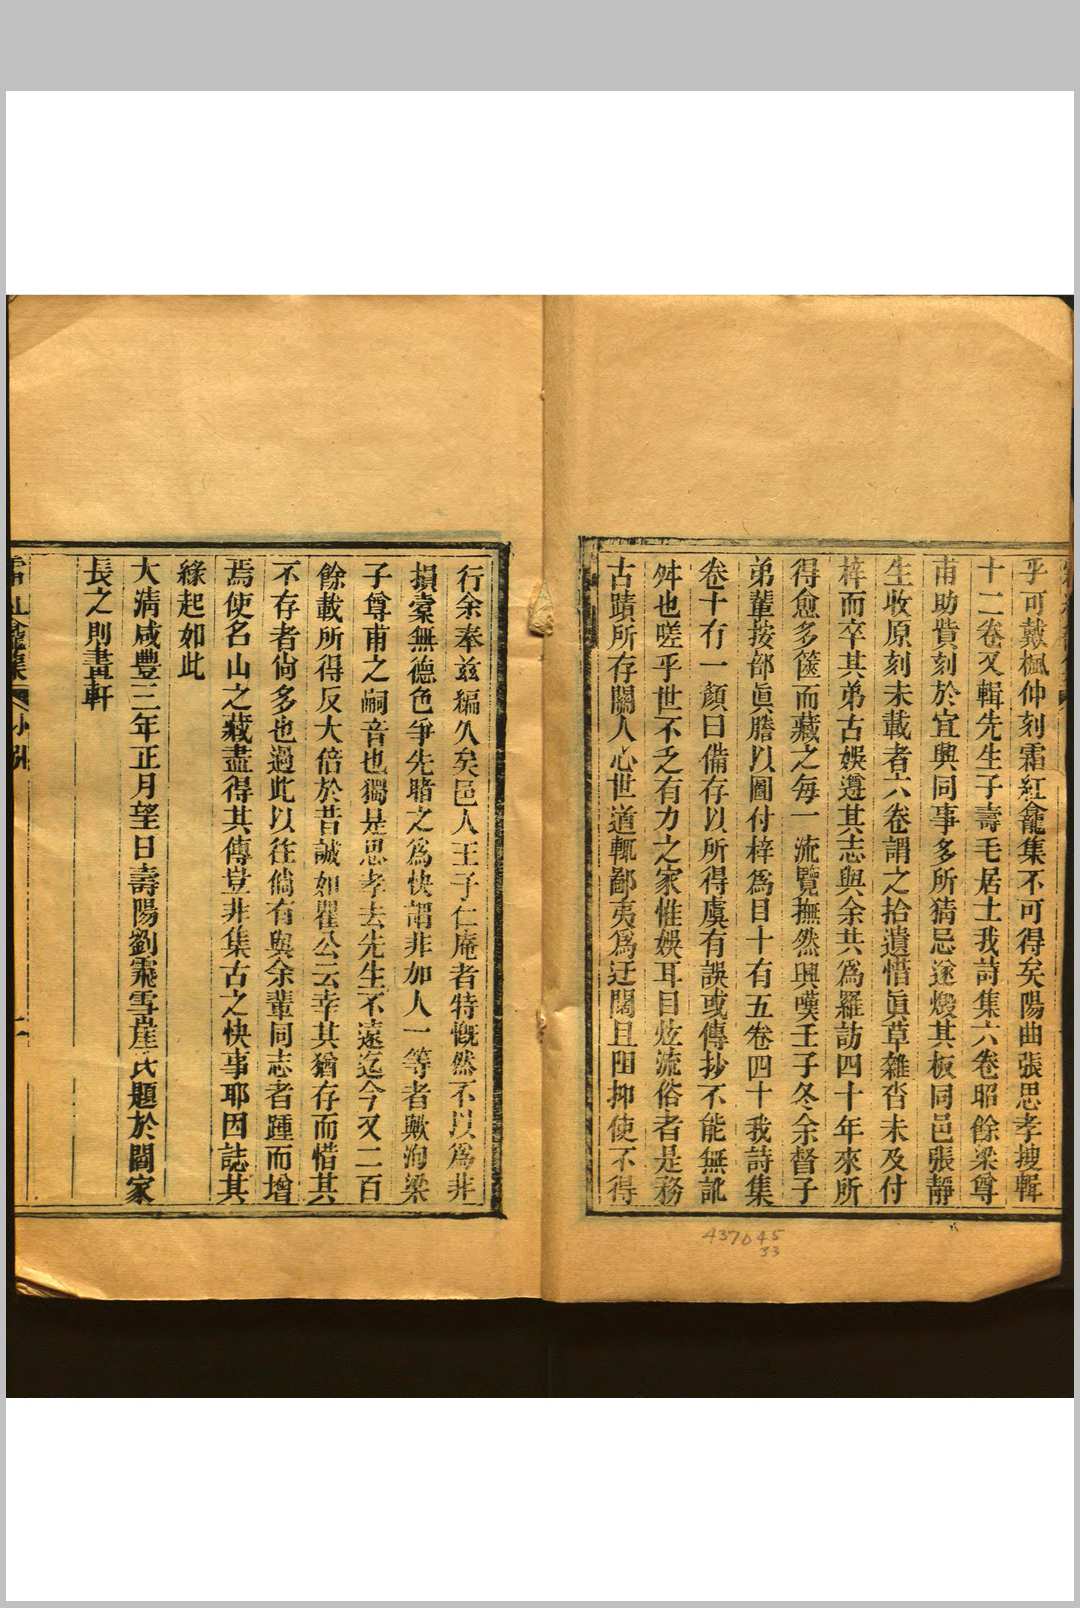 乎可戴楓仲刻霜紅龕集不可得矣陽曲張思孝搜輯
十二卷又輯先生子壽毛居士我詩集六卷昭餘梁尊
甫助貲刻於宜興同事多所猜忌遂燬其板同邑張靜
生收原刻未載者六卷謂之拾遺惜眞草雜沓未及付
梓而卒其弟古娛遵其志與余共為羅訪四十年來所
得愈多篋而藏之每一流覽撫然興嘆壬子冬余督子
弟輩按部眞謄以圖付梓為目十有五卷四十我詩集
卷十有一顏曰備存以所得虞有誤或傳抄不能無訛
舛也嗟乎世不乏有力之家惟娛耳目炫流俗者是務
古蹟所存關人心世道輒鄙夷為迂闊且阻抑使不得
行余奉兹編久矣邑人王子仁庵者特慨然不以為非
損橐無德色爭先睹之為快謂非加人一等者歟洵梁
子尊甫之嗣音也獨是思孝去先生不遠迄今又二百
餘載所得反大倍於昔誠如瞿公云幸其猶存而惜其
不存者尙多也過此以往倘有與余輩同志者踵而增
焉使名山之藏盡得其傳豈非集古之快事耶因誌其
緣起如此
大淸咸豐三年正月望日壽陽劉霏雪崖氏題於閻家
長之則畫軒
小引
437045
33